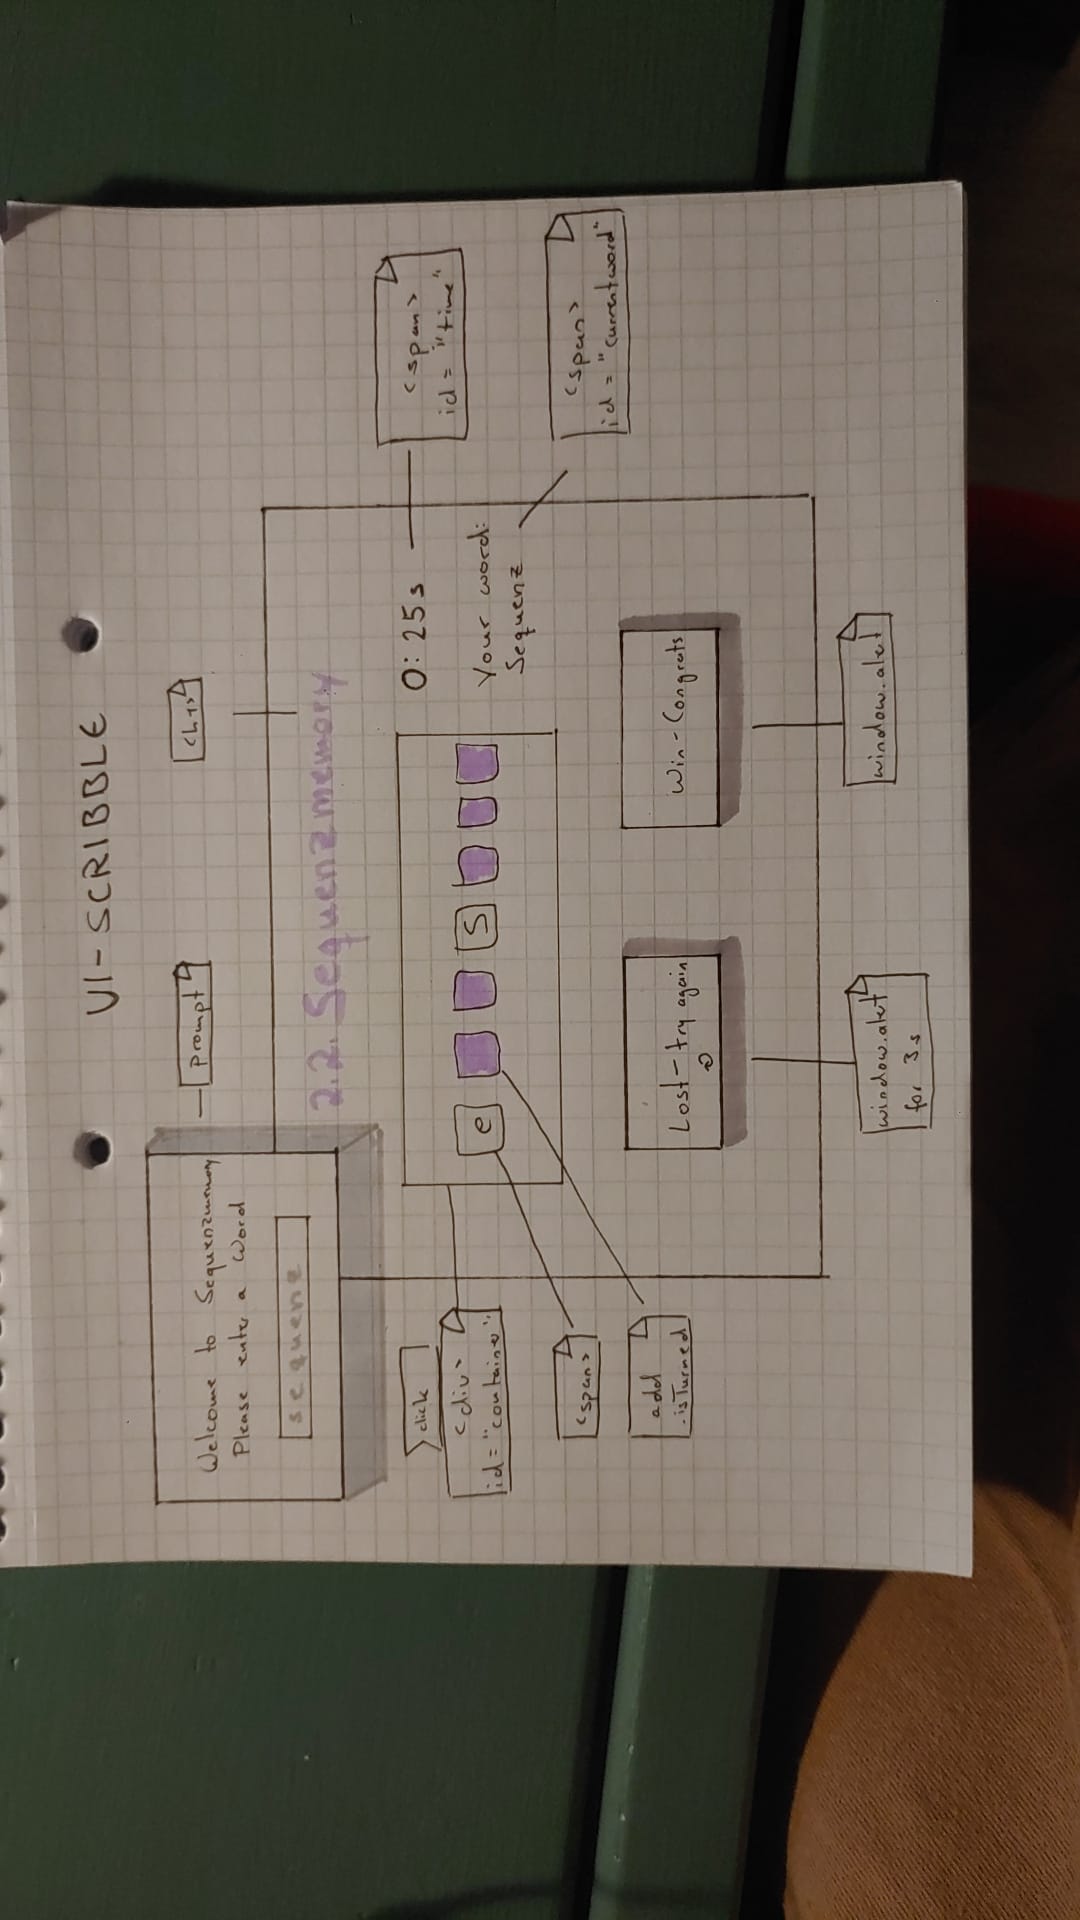 UI-SCRIBBLE
Welcome to Sequenzmemory
Please enter a Word
sequenz
prompt
<h1>
2.2. Sequenzmemory
click
<div>
id="container"
e
S
0:25s
<span>
id = "time"
Your word:
Sequenz
<span>
id = "currentword"
<span>
add
.isTurned
Lost-try again
Win-Congrats
window.alert
for 3s
window.alert